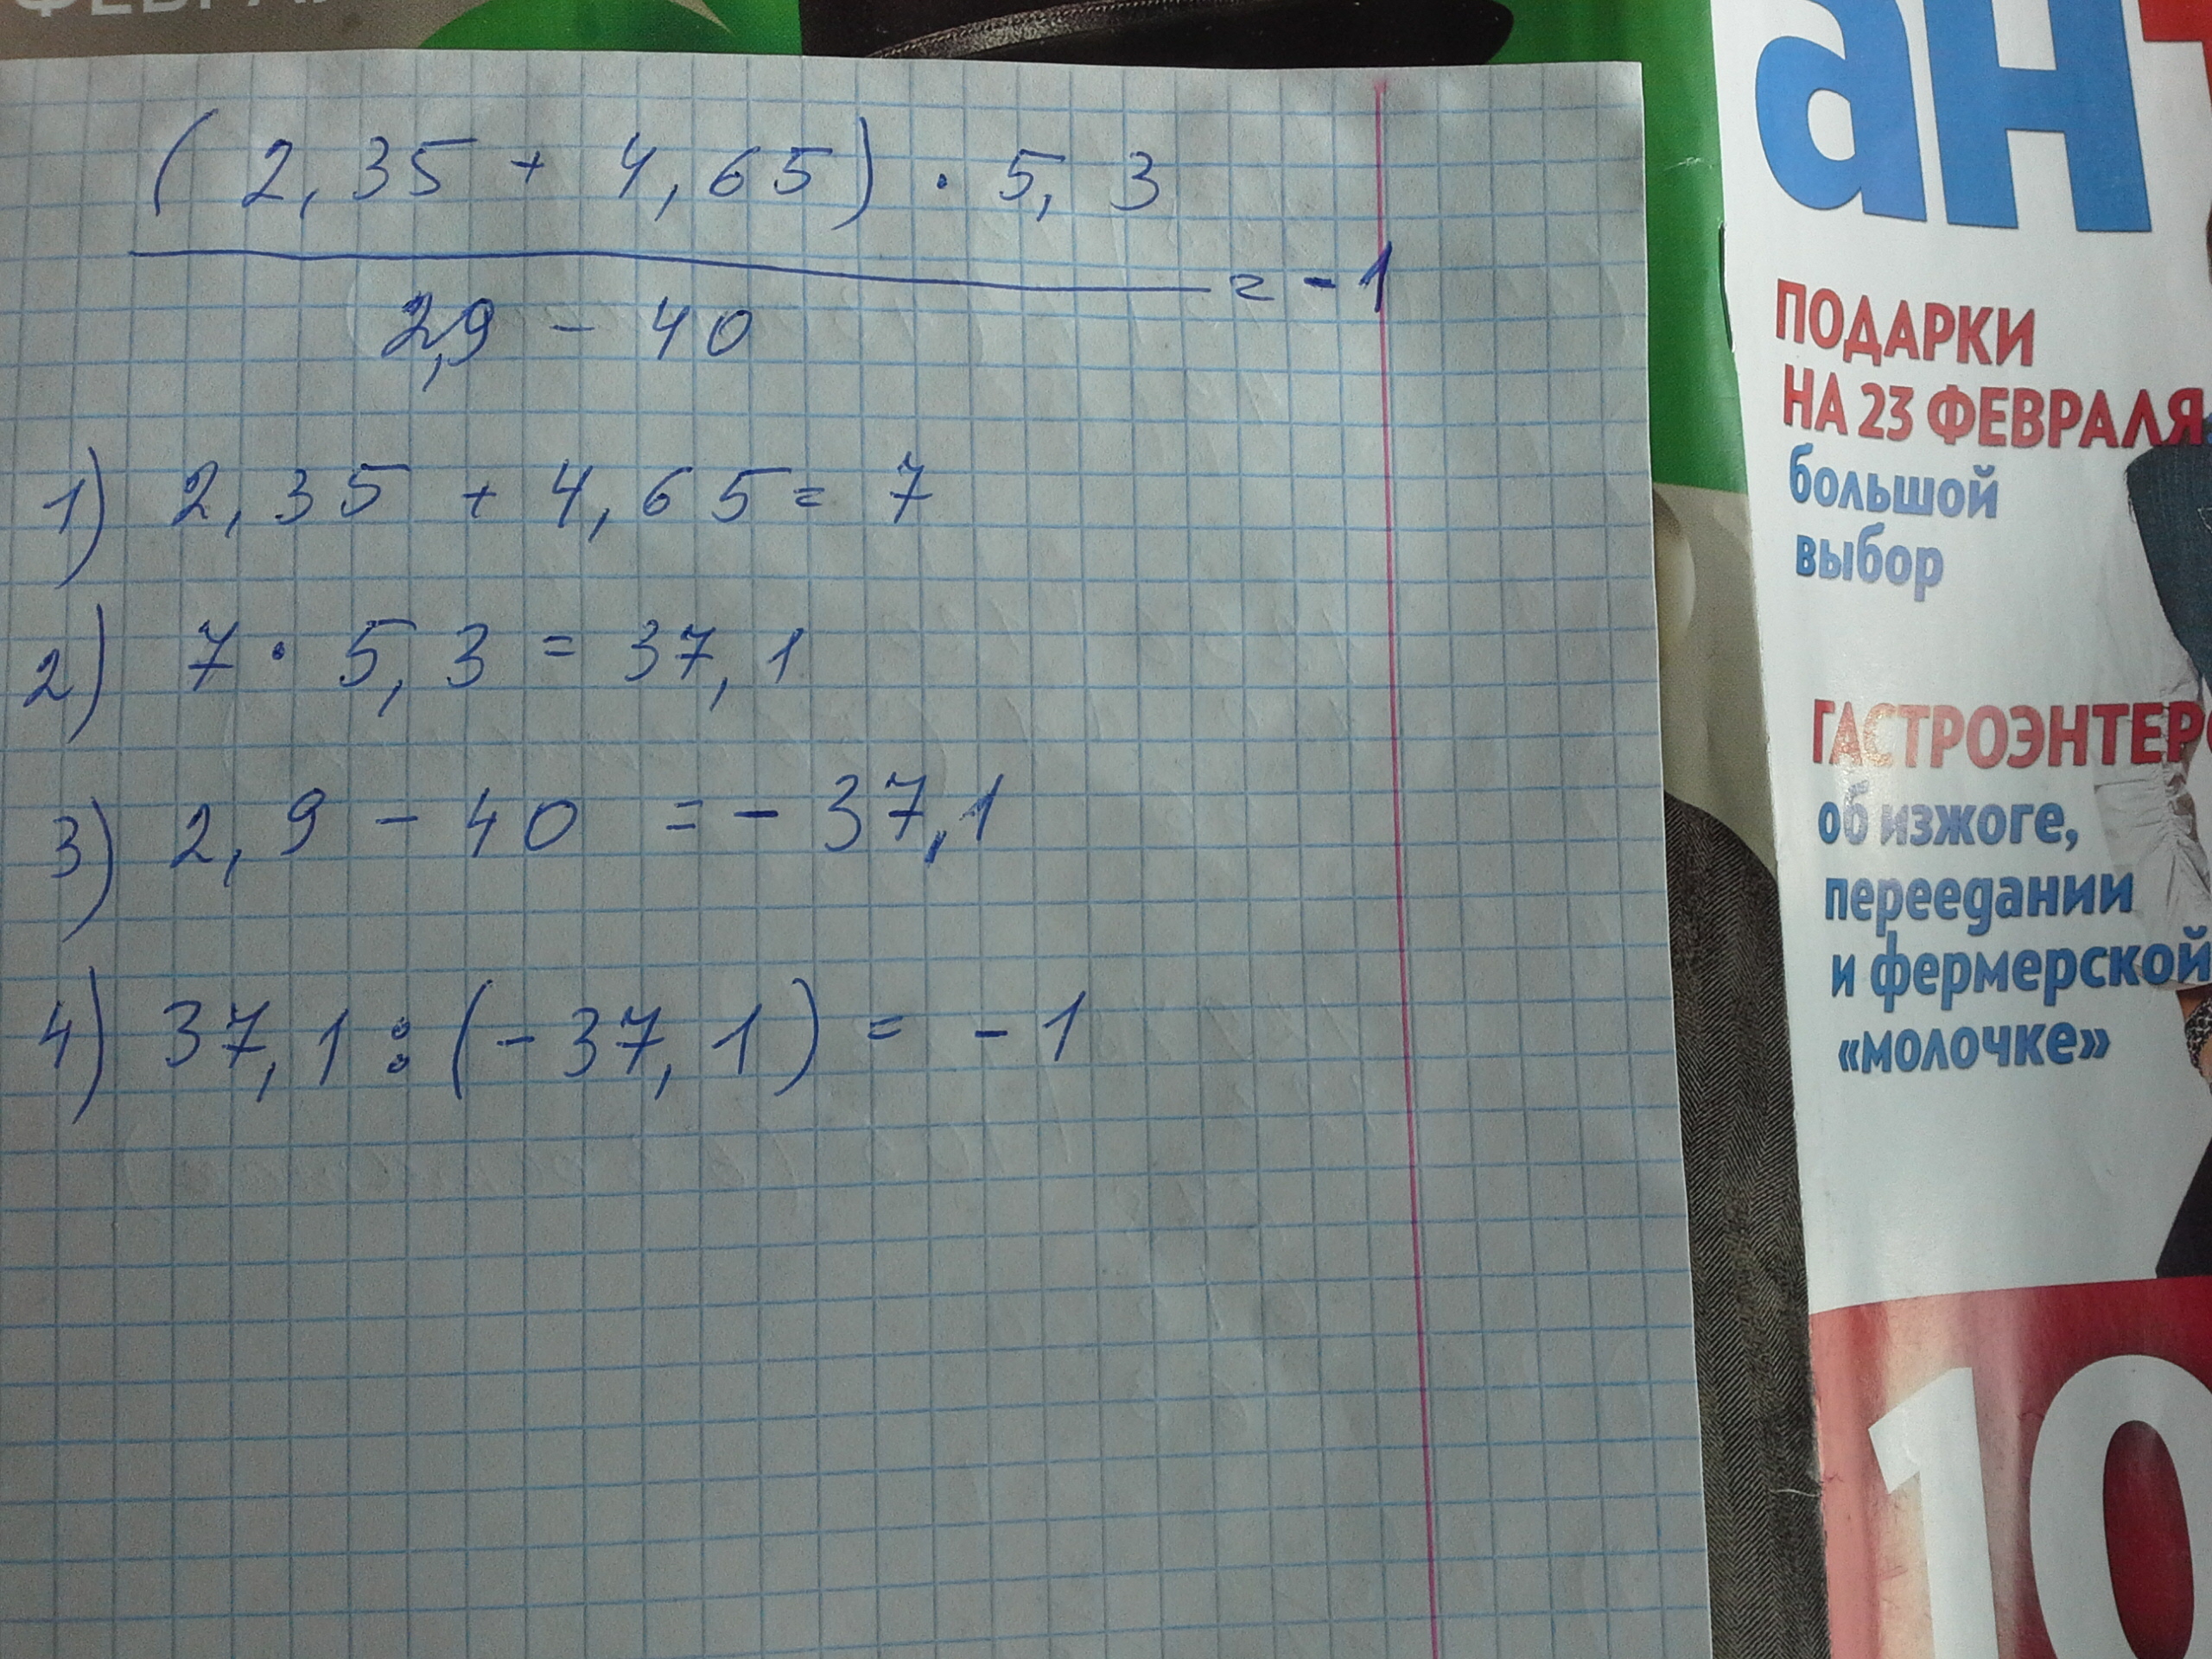 (2,35 + 4,65) · 5,3
2,9 - 40
= -1
1) 2,35 + 4,65 = 7
2) 7 · 5,3 = 37,1
3) 2,9 - 40 = - 37,1
4) 37,1 : (- 37,1) = - 1
ПОДАРКИ
НА 23 ФЕВРАЛЯ
большой
выбор
об изжоге,
переедании
и фермерской
«молочке»
10